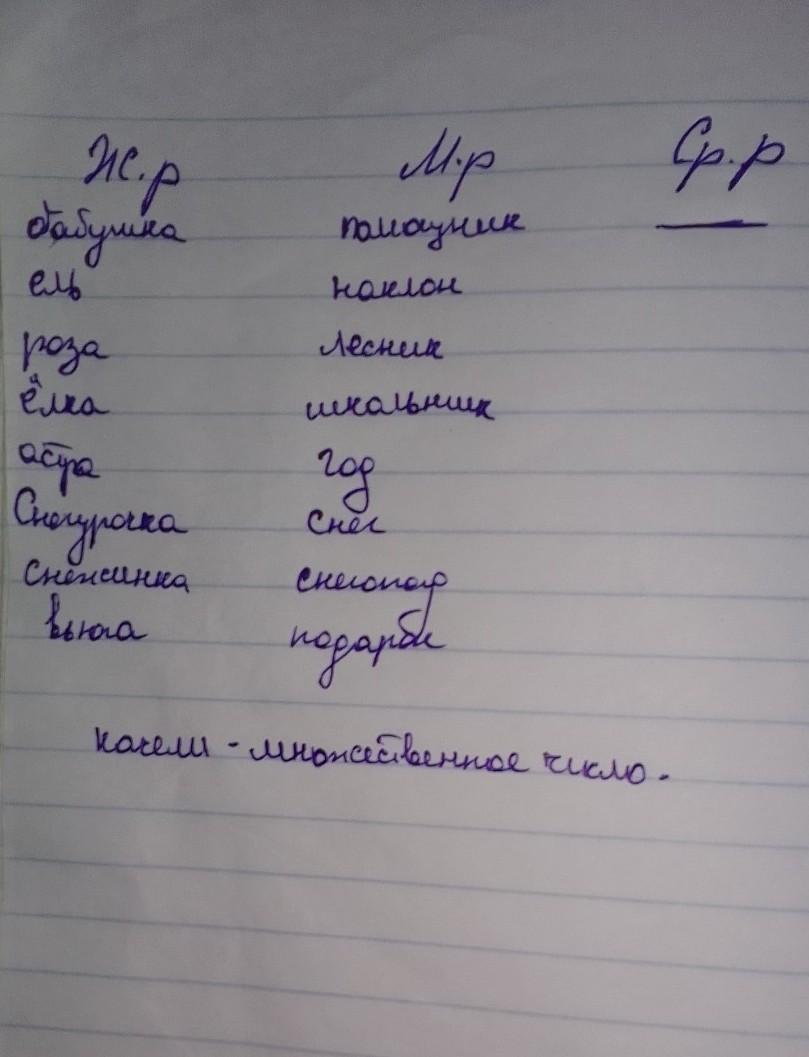 Ж.р М.р Ср.р
бабушка помощник —
ель наклон
роза лесник
ёлка школьник
астра год
Снегурочка снег
снежинка снегопад
вьюга подарок
качели - множественное число.